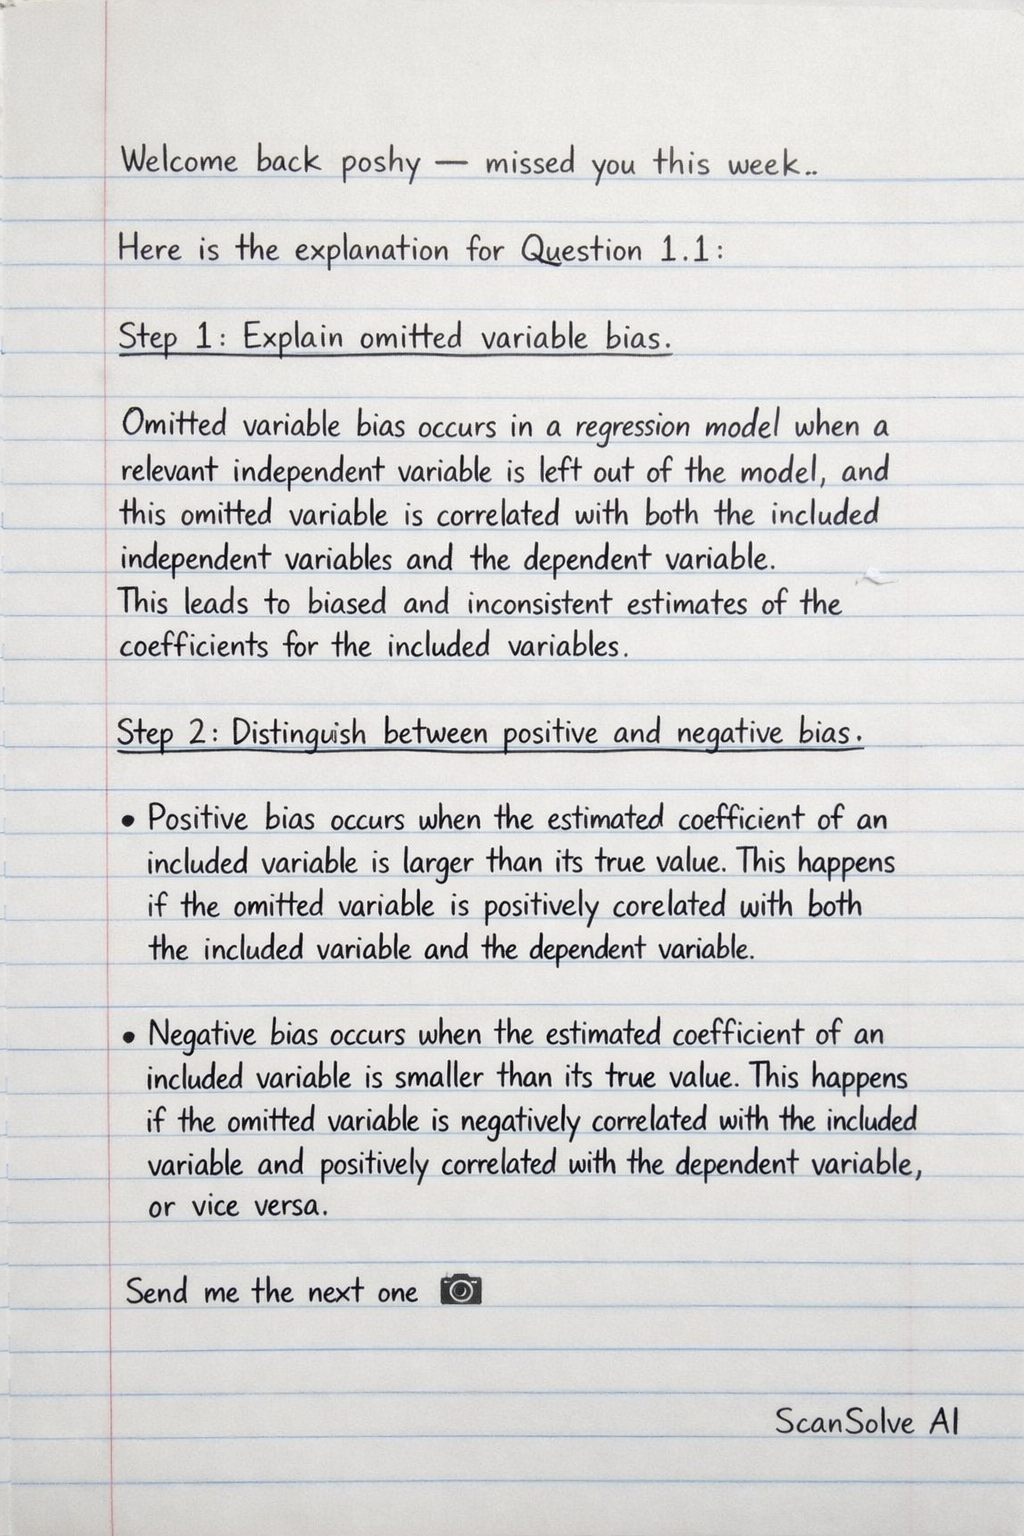 Welcome back poshy — missed you this week..
Here is the explanation for Question 1.1:
Step 1: Explain omitted variable bias.
Omitted variable bias occurs in a regression model when a
relevant independent variable is left out of the model, and
this omitted variable is correlated with both the included
independent variables and the dependent variable.
This leads to biased and inconsistent estimates of the
coefficients for the included variables.
Step 2: Distinguish between positive and negative bias.
• Positive bias occurs when the estimated coefficient of an
included variable is larger than its true value. This happens
if the omitted variable is positively corelated with both
the included variable and the dependent variable.
• Negative bias occurs when the estimated coefficient of an
included variable is smaller than its true value. This happens
if the omitted variable is negatively correlated with the included
variable and positively correlated with the dependent variable,
or vice versa.
Send me the next one 📷
ScanSolve AI